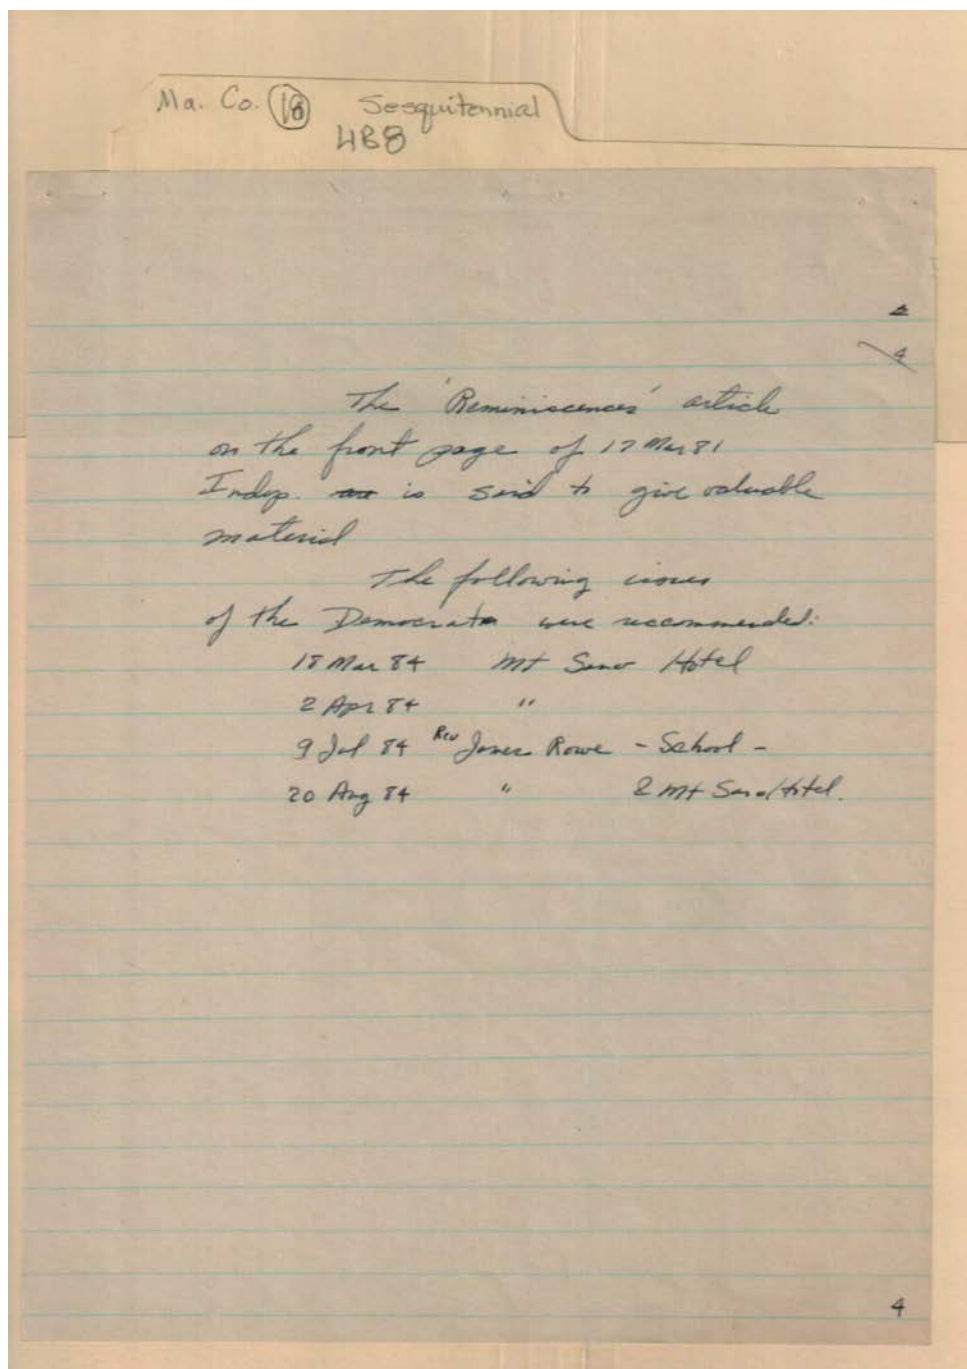 Ma. Co. 18 Sesquitennial
4B8
4
The 'Reminiscences' article
on the front page of 17 Mar 81
Indep. is said to give valuable
material
The following issues
of the Democrat were recommended:
18 Mar 84 Mt Sano Hotel
2 Apr 84 "
9 Jul 84 Rev James Rowe - School -
20 Aug 84 " & Mt Sano Hotel.
4